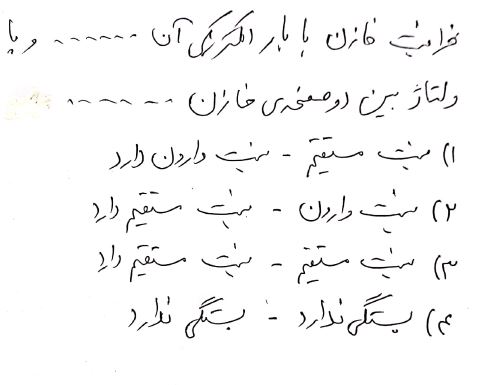 ظرفیت خازن با بار الکتریکی آن ....... و با
ولتاژ بین دو صفحه‌ی خازن .......
۱) نسبت مستقیم - نسبت وارون دارد
۲) نسبت وارون - نسبت مستقیم دارد
۳) نسبت مستقیم - نسبت مستقیم دارد
۴) بستگی ندارد - بستگی ندارد